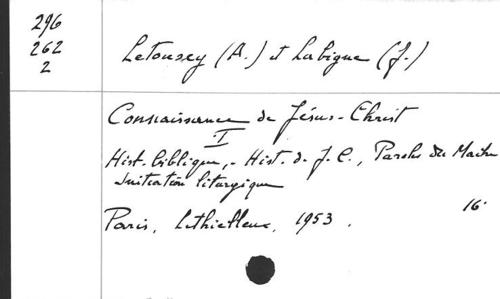 296
262
2
Letousey (A.) et Labigne (J.)
Connaissance de Jésus-Christ
I
Hist. biblique, - Hist. de J. C., Paroles du Maître
Initiation liturgique
Paris, Lethielleux, 1953.
16°